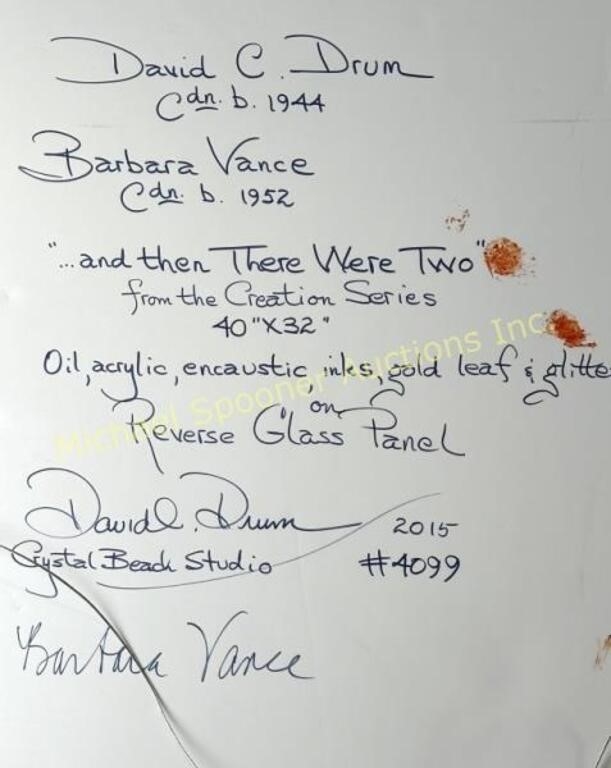 David C. Drum
Cdn. b. 1944
Barbara Vance
Cdn. b. 1952
"...and then There Were Two"
from the Creation Series
40"X32"
Oil, acrylic, encaustic, inks, gold leaf & glitte
on
Reverse Glass Panel
David C. Drum 2015
Crystal Beach Studio #4099
Barbara Vance
Michael Spooner Auctions Inc.